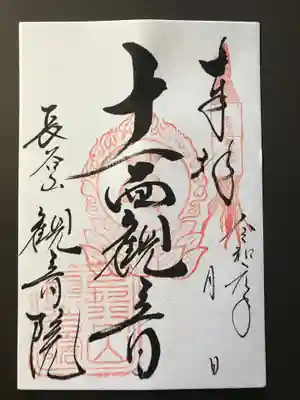 奉拝
令和元年 月 日
十一面観音
長谷山 観音院